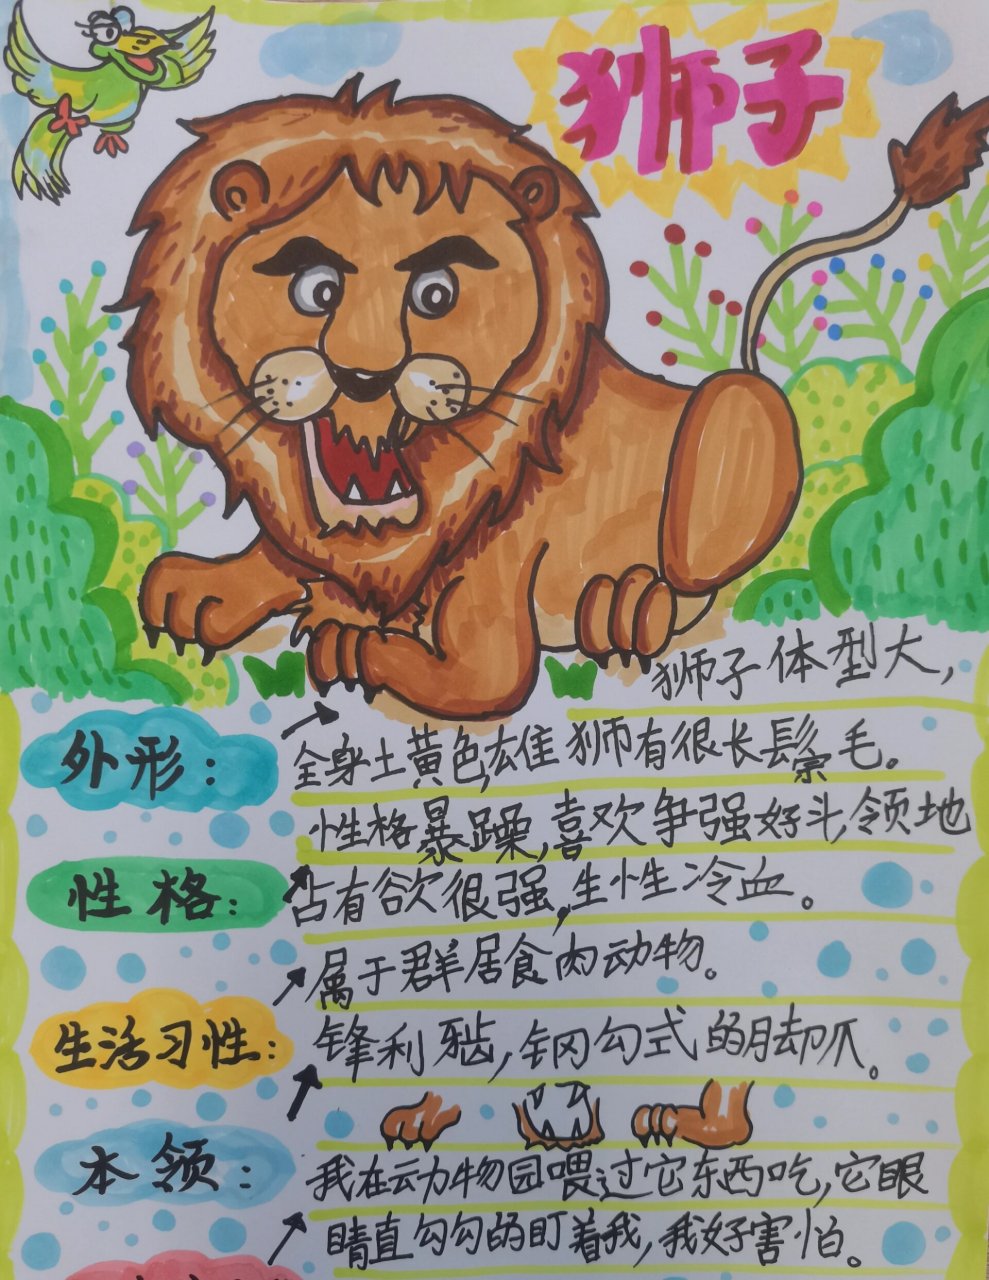 狮子
狮子体型大,
外形:
全身土黄色,雄狮有很长鬃毛。
性格暴躁,喜欢争强好斗,领地
性格:
占有欲很强,生性冷血。
属于群居食肉动物。
生活习性:
锋利牙齿,钢勾式的脚爪。
本领:
我在动物园喂过它东西吃,它眼
睛直勾勾的盯着我,我好害怕。